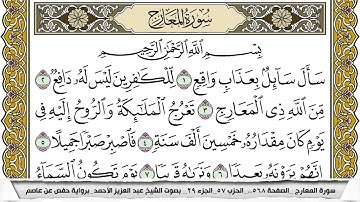 سورة المعارج
بِسْمِ اللَّهِ الرَّحْمَٰنِ الرَّحِيمِ
سَأَلَ سَائِلٌ بِعَذَابٍ وَاقِعٍ ١ لِّلْكَافِرِينَ لَيْسَ لَهُ دَافِعٌ ٢
مِّنَ اللَّهِ ذِي الْمَعَارِجِ ٣ تَعْرُجُ الْمَلَائِكَةُ وَالرُّوحُ إِلَيْهِ فِي
يَوْمٍ كَانَ مِقْدَارُهُ خَمْسِينَ أَلْفَ سَنَةٍ ٤ فَاصْبِرْ صَبْرًا جَمِيلًا ٥
إِنَّهُمْ يَرَوْنَهُ بَعِيدًا ٦ وَنَرَاهُ قَرِيبًا ٧ يَوْمَ تَكُونُ السَّمَاءُ
سورة المعارج _الصفحة ٥٦٨_ الحزب ٥٧_ الجزء ٢٩_ بصوت الشيخ عبد العزيز الأحمد_ برواية حفص عن عاصم